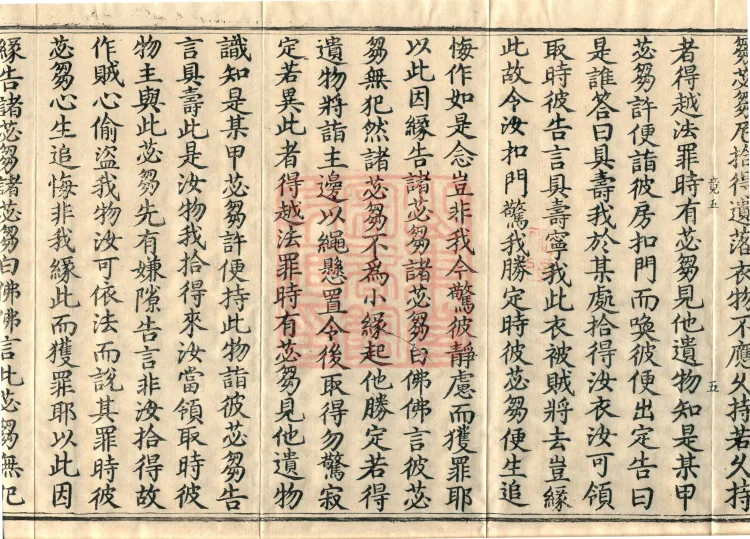 芻苾芻房拾得遺落衣物不應久持若久持
者得越法罪時有苾芻見他遺物知是某甲
苾芻許便詣彼房扣門而喚彼便出定告曰
是誰答曰具壽我於某處拾得汝衣汝可領
取時彼告言具壽寧我此衣被賊將去豈緣
此故令汝扣門驚我勝定時彼苾芻便生追
悔作如是念豈非我今驚彼靜慮而獲罪耶
以此因緣告諸苾芻諸苾芻白佛佛言彼苾
芻無犯然諸苾芻不為小緣起他勝定若得
遺物將詣主邊以繩懸置令後取得勿驚寂
定若異此者得越法罪時有苾芻見他遺物
識知是某甲苾芻許便持此物詣彼苾芻告
言具壽此是汝物我拾得來汝當領取時彼
物主與此苾芻先有嫌隙告言非汝拾得故
作賊心偷盜我物汝可依法而說其罪時彼
苾芻心生追悔非我緣此而獲罪耶以此因
緣告諸苾芻諸苾芻白佛佛言此苾芻無犯
竟五
五